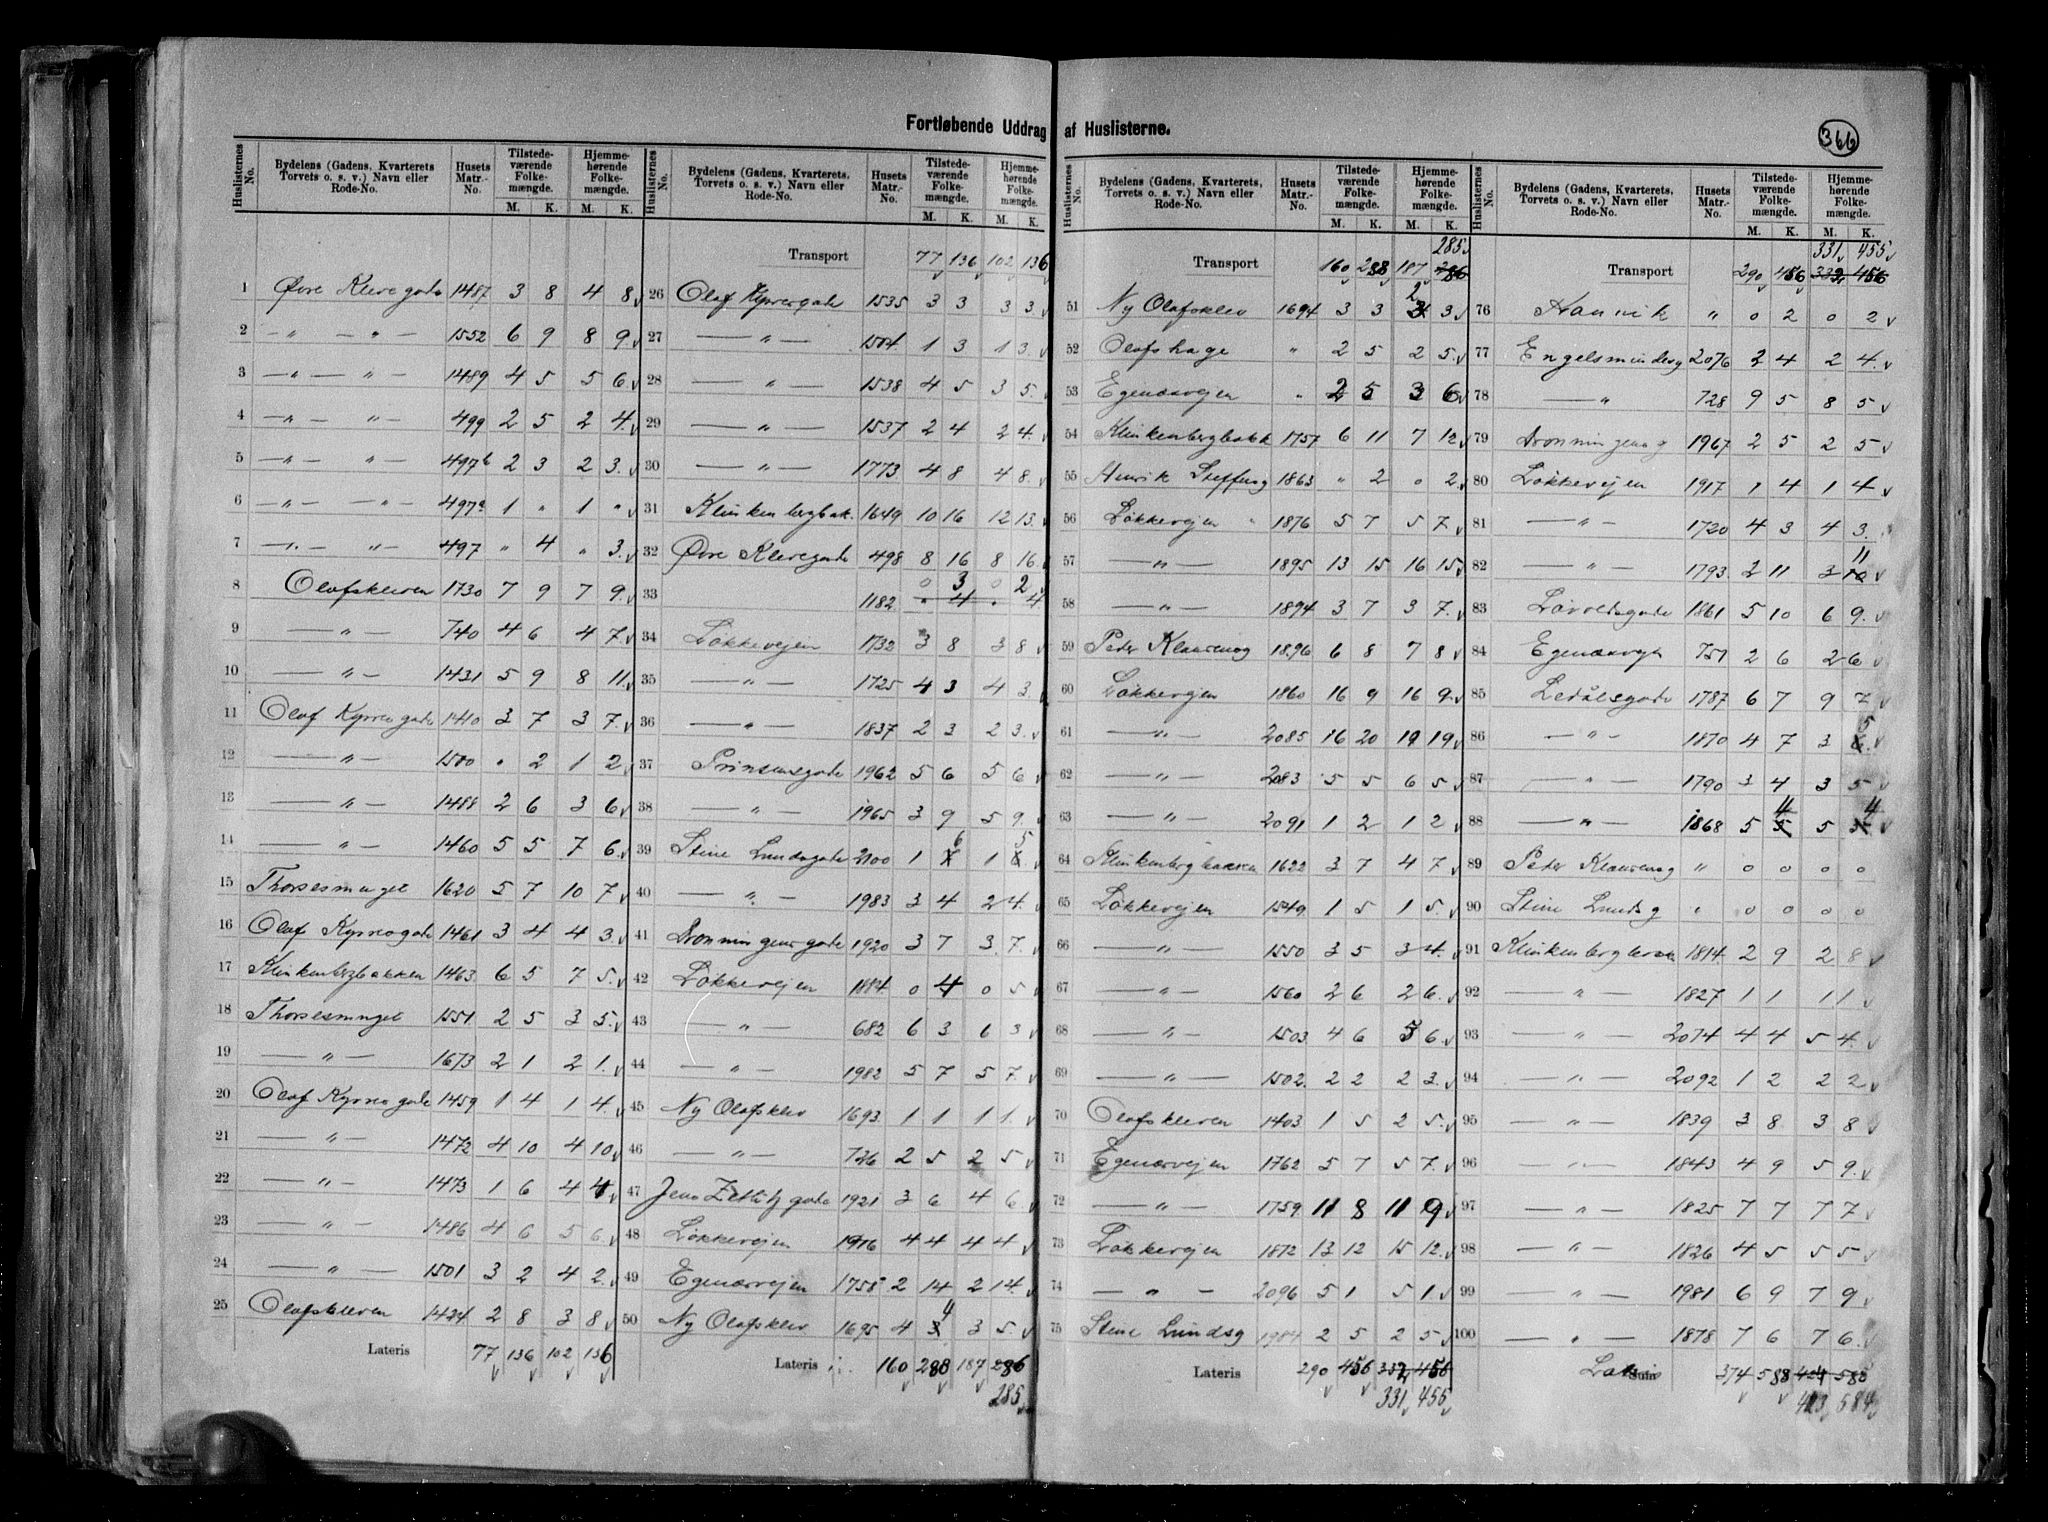 366
Fortløbende Uddrag af Huslisterne.
Huslisternes No. Bydelens (Gadens, Kvarterets Torvets o. s. v.) Navn eller Rode-No. Husets Matr.-No. Tilstedeværende Folkemængde. M. K. Hjemmehørende Folkemængde. M. K.
1 Øvre Klevegade 1487 3 8 4 8
2 -„- -„- 1552 6 9 8 9
3 -„- „- 1489 4 5 5 6
4 -„- „- 499 2 5 2 4
5 -„- „- 497b 2 3 2 3
6 -„- -„- 497a 1 „ 1 „
7 -„- „- 497 „ 4 „ 3
8 Olafskleven 1730 7 9 7 9
9 -„- 740 4 6 4 7
10 -„- 1431 5 9 8 11
11 Olaf Kyrresgade 1410 3 7 3 7
12 -„- 1500 „ 2 1 2
13 -„- 1488 2 6 3 6
14 -„- 1460 5 5 7 6
15 Thorsesmuget 1620 5 7 10 7
16 Olaf Kyrresgade 1461 3 4 4 3
17 Klinkenbergbakken 1463 6 5 7 5
18 Thorsesmuget 1551 2 5 3 5
19 -„- 1673 2 1 2 1
20 Olaf Kyrresgade 1459 1 4 1 4
21 -„- 1472 4 10 4 10
22 -„- 1473 1 6 4 4
23 -„- 1486 4 6 5 6
24 -„- 1501 3 2 4 2
25 Olafskleven 1424 2 8 3 8
Lateris 77 136 102 136
Huslisternes No. Bydelens (Gadens, Kvarterets, Torvets o. s. v.) Navn eller Rode-No. Husets Matr.-No. Tilstedeværende Folkemængde. M. K. Hjemmehørende Folkemængde. M. K.
Transport 77 136 102 136
26 Olaf Kyrresgade 1535 3 3 3 3
27 -„- 1504 1 3 1 3
28 -„- 1538 4 5 3 5
29 -„- 1537 2 4 2 4
30 -„- 1773 4 8 4 8
31 Klinkenbergbak. 1649 10 16 12 13
32 Øvre Klevegade 498 8 16 8 16
0 3 0 2
33 1182 „ 4 „ 4
34 Løkkevejen 1732 3 8 3 8
35 -„- 1725 4 3 4 3
36 -„- 1837 2 3 2 3
37 Prinsensgade 1962 5 6 5 6
38 -„- 1965 3 9 5 9
6 5
39 Stine Lundsgade 2100 1 1
40 -„- 1983 3 4 2 4
41 Dronningensgade 1920 3 7 3 7
42 Løkkevejen 1884 0 4 0 5
43 -„- 682 6 3 6 3
44 -„- 1982 5 7 5 7
45 Ny Olafsklev 1693 1 1 1 1
46 -„- 736 2 5 2 5
47 Jens Zetlitzgade 1921 3 6 4 6
48 Løkkevejen 1916 4 4 4 4
49 Egenæsvejen 1758 2 14 2 14
4
50 Ny Olafsklev 1695 4 3 3 5
Lateris 160 288 187 286
285
Huslisternes No. Bydelens (Gadens, Kvarterets, Torvets o. s. v.) Navn eller Rode-No. Husets Matr.-No. Tilstedeværende Folkemængde. M. K. Hjemmehørende Folkemængde. M. K.
285
Transport 160 288 187 286
2
51 Ny Olafsklev 1694 3 3 3 3
52 Olafshage „ 2 5 2 5
53 Egenæsvejen „ 2 5 3 6
54 Klinkenbergbakk 1757 6 11 7 12
55 Henrik Steffensg 1863 „ 2 0 2
56 Løkkevejen 1876 5 7 5 7
57 -„- 1895 13 15 16 15
58 -„- 1894 3 7 3 7
59 Peder Klausensg 1896 6 8 7 8
60 Løkkevejen 1860 16 9 16 9
61 -„- 2085 16 20 19 19
62 -„- 2083 5 5 6 5
63 -„- 2091 1 2 1 2
64 Klinkenbergbakken 1622 3 7 4 7
65 Løkkevejen 1549 1 5 1 5
66 -„- 1550 3 5 3 4
67 -„- 1560 2 6 2 6
68 -„- 1503 4 6 5 6
69 -„- 1502 2 2 2 3
70 Olafskleven 1403 1 5 2 5
71 Egenæsvejen 1762 5 7 5 7
72 -„- 1759 11 8 11 9
73 Løkkevejen 1872 13 12 15 12
74 -„- 2096 5 1 5 1
75 Stine Lundsg 1984 2 5 2 5
Lateris 290 456 332 456
331 455
Huslisternes No. Bydelens (Gadens, Kvarterets, Torvets o. s. v.) Navn eller Rode-No. Husets Matr.-No. Tilstedeværende Folkemængde. M. K. Hjemmehørende Folkemængde. M. K.
331 455
Transport 290 456 332 456
76 Hanvik „ 0 2 0 2
77 Engelsmindesg 2076 2 4 2 4
78 -„ 728 9 5 8 5
79 Dronningensg 1967 2 5 2 5
80 Løkkevejen 1917 1 4 1 4
81 -„- 1720 4 3 4 3
11
82 -„- 1793 2 11 3 10
83 Løvoldsgade 1861 5 10 6 9
84 Egenæsvejn 751 2 6 2 6
85 Ledålsgade 1787 6 7 9 7
5
86 -„- 1870 4 7 3
87 -„- 1790 3 4 3 5
4 4
88 -„- 1868 5 5 5 5
89 Peder Klausensg „ 0 0 0 0
90 Stine Lundsg „ 0 0 0 0
91 Klinkenbergbakk 1814 2 9 2 8
92 -„- 1827 1 1 1 1
93 -„- 2074 4 4 5 4
94 -„- 2092 1 2 2 2
95 -„- 1839 3 8 3 8
96 -„- 1843 4 9 5 9
97 -„- 1825 7 7 7 7
98 -„- 1826 4 5 5 5
99 -„- 1981 6 9 7 9
100 -„- 1878 7 6 7 6
Lateris 374 588 424 585
423 584